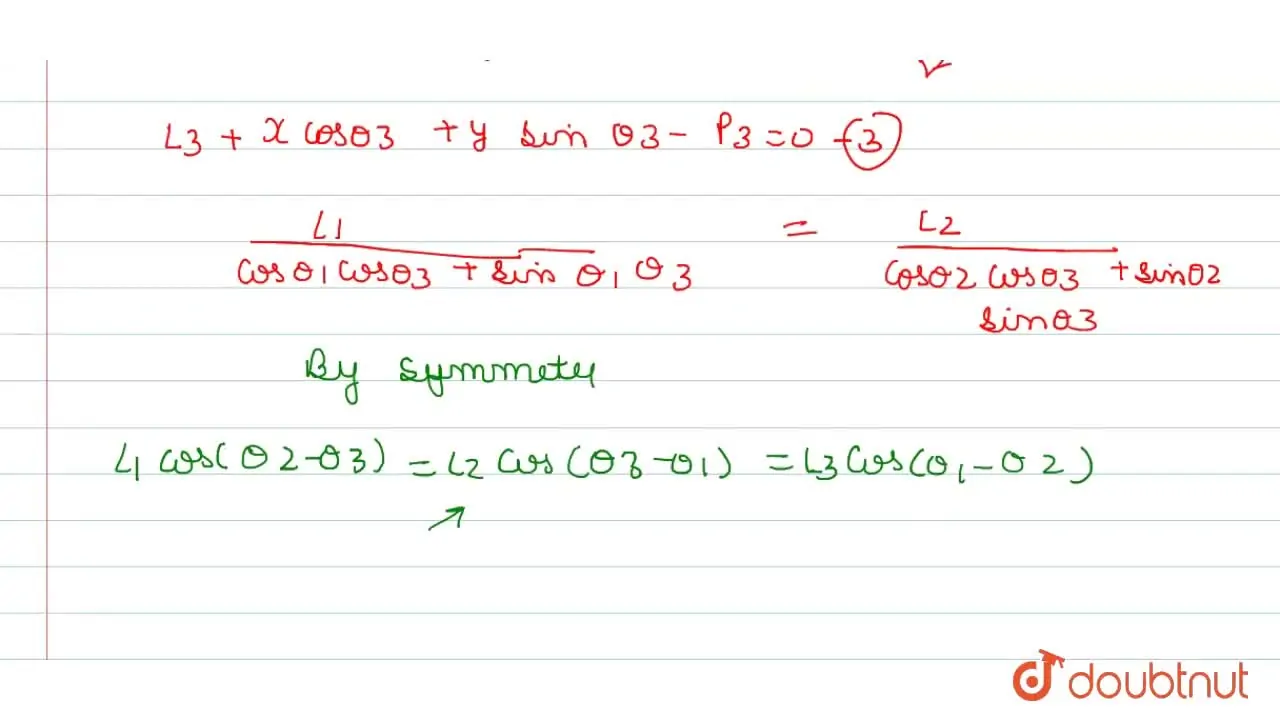 L3 + x cosθ3 + y sin θ3 - P3 = 0 - 3
L1 / cosθ1 cosθ3 + sin θ1 θ3 = L2 / cosθ2 cosθ3 + sinθ2 sinθ3
By symmety
L1 cos(θ2-θ3) = L2 cos(θ3-θ1) = L3 cos(θ1-θ2)
doubtnut